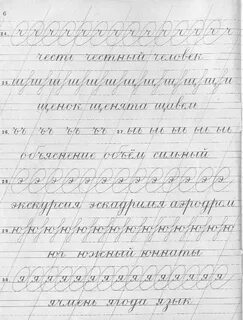 6
24. ч ч ч ч ч ч ч ч ч ч ч ч
честь честный человек
25. щ щ щ щ щ щ щ щ щ щ щ
щенок щенята щавель
26. ъ ъ ъ ъ ъ 27. ы ы ы ы ы ы
объяснение объём сильный
э э э э э э э э э э э э
экскурсия эскадрилья аэродром
ю ю ю ю ю ю ю ю ю ю ю
юг южный юннаты
я я я я я я я я я я я я
ячмень ягода язык